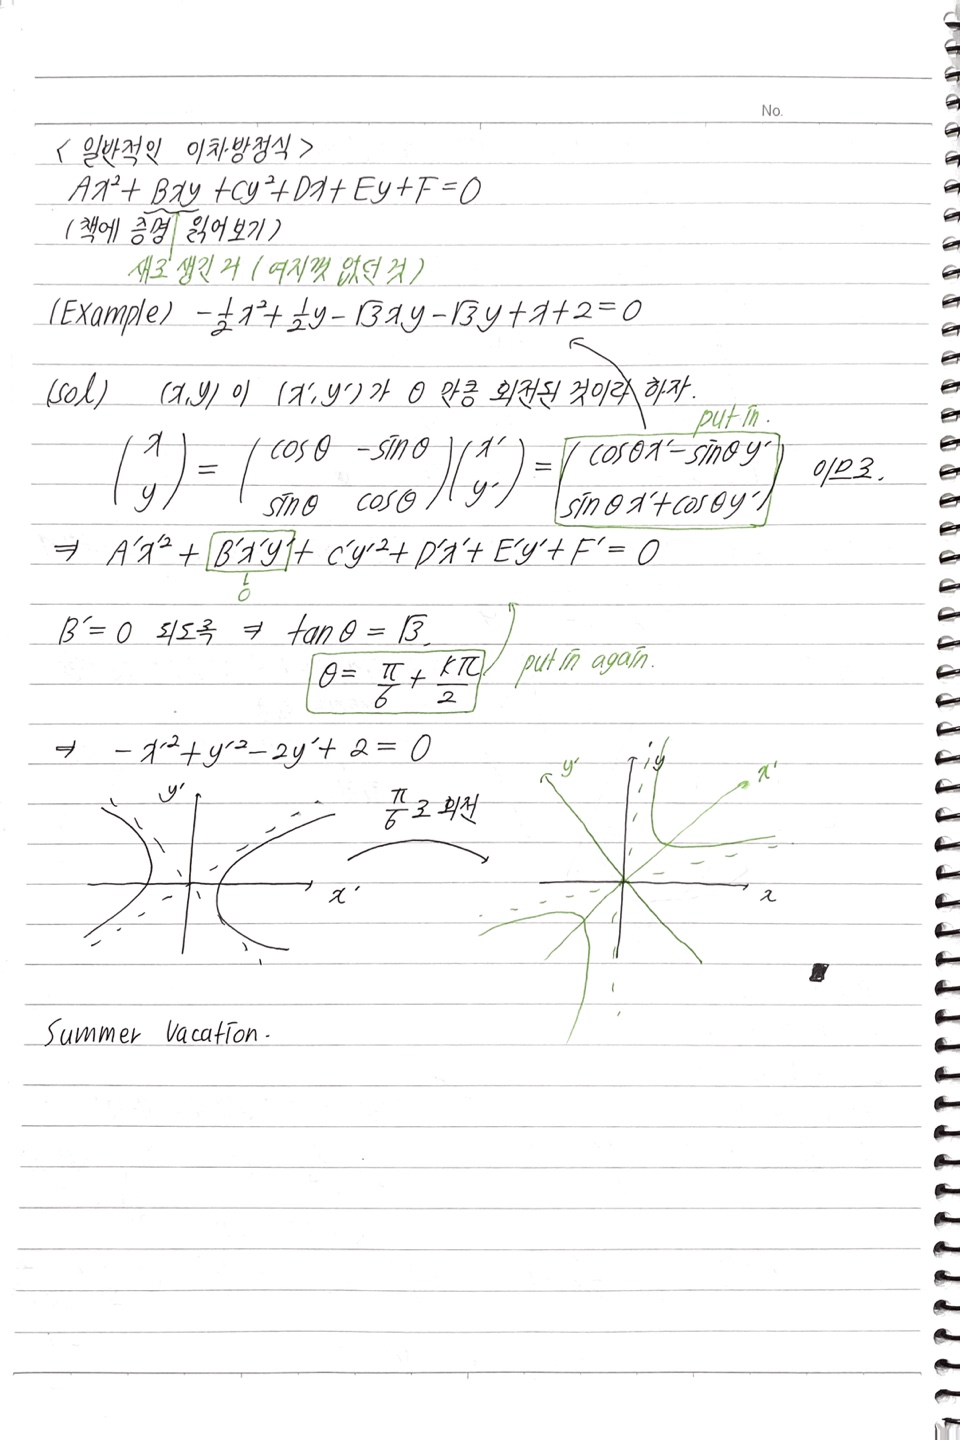 No.
< 일반적인 이차방정식 >
Ax² + Bxy + Cy² + Dx + Ey + F = 0
(책에 증명 읽어보기)
새로 생긴 거 (여지껏 없던 것)
(Example) -½x² + ½y - √3xy - √3y + x + 2 = 0
(sol) (x,y) 이 (x′,y′) 가 θ 만큼 회전된 것이라 하자.
put in.
(x y) = (cosθ -sinθ sinθ cosθ)(x′ y′) = (cosθx′-sinθy′ sinθx′+cosθy′) 이므로.
⇒ A′x′² + B′x′y′ + C′y′² + D′x′ + E′y′ + F′ = 0
0
B′ = 0 되도록 ⇒ tanθ = √3.
θ = π/6 + kπ/2 put in again.
⇒ -x′² + y′² - 2y′ + 2 = 0
y′ x′
π/6 로 회전
y′ y x′ x
Summer Vacation.